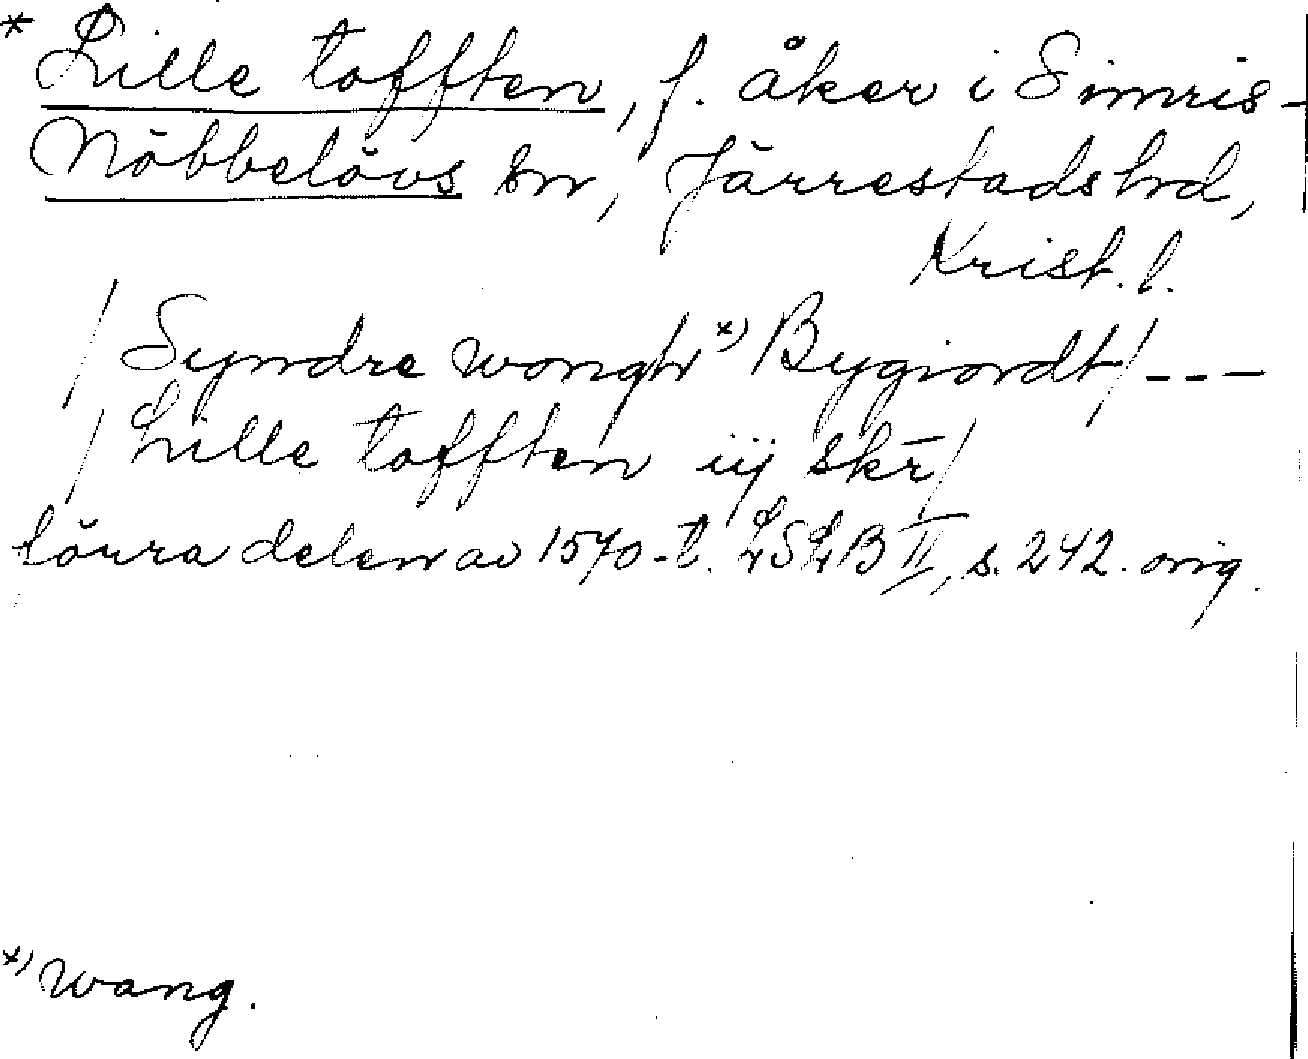 * Lille tofften, f. åker i Simris-
Nöbbelövs sn, Järrestads hd,
Krist. l.
/ Syndre wongh *) Bygiordt / ---
/ Lille tofften iij skr /
förra delen av 1570-t. LSLB II, s. 242. orig.
*) wang.